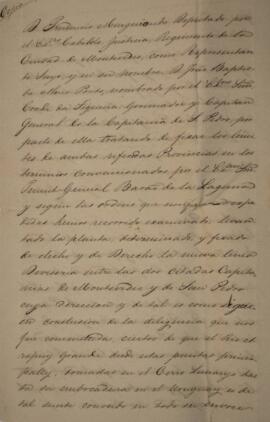 Copia
D. Prudencio Murguiondo Deputado por
el Ex.mo Cabildo, Justicia, Regimiento de la
Ciudad de Montevideo, como Representan
te Suyo, y en su nombre D. João Baptis
ta Alves Porto, nombrado por el Ex.mo Señ.
Conde da Figueira, Governador y Capitan
General de la Capitania de S. Pedro, por
parte de ella tratando de fixar los limi
tes de ambas referidas Provincias en los
terminos Convencionados por el Ex.mo Señ.
Tenient General Baron de la Laguna
y segun las ordenes que
hemos recorrido examinado levan
tado la planta, determinado, y fixado
de hecho y de Derecho la nueva linea
Divisoria entre las dos Citadas Capita
nias de Montevideo y de San Pedro
cuya Direccion y detal es como sigue
en conclusion de la diligencia que nos
fue cometida, cierto de que el Rio A
rapuy Grande desde sus puntas princi
pales, tomadas en el Cerro Lunarejo has
ta su embocadura en el Uruguay es de
tal suerte conocido en todo su